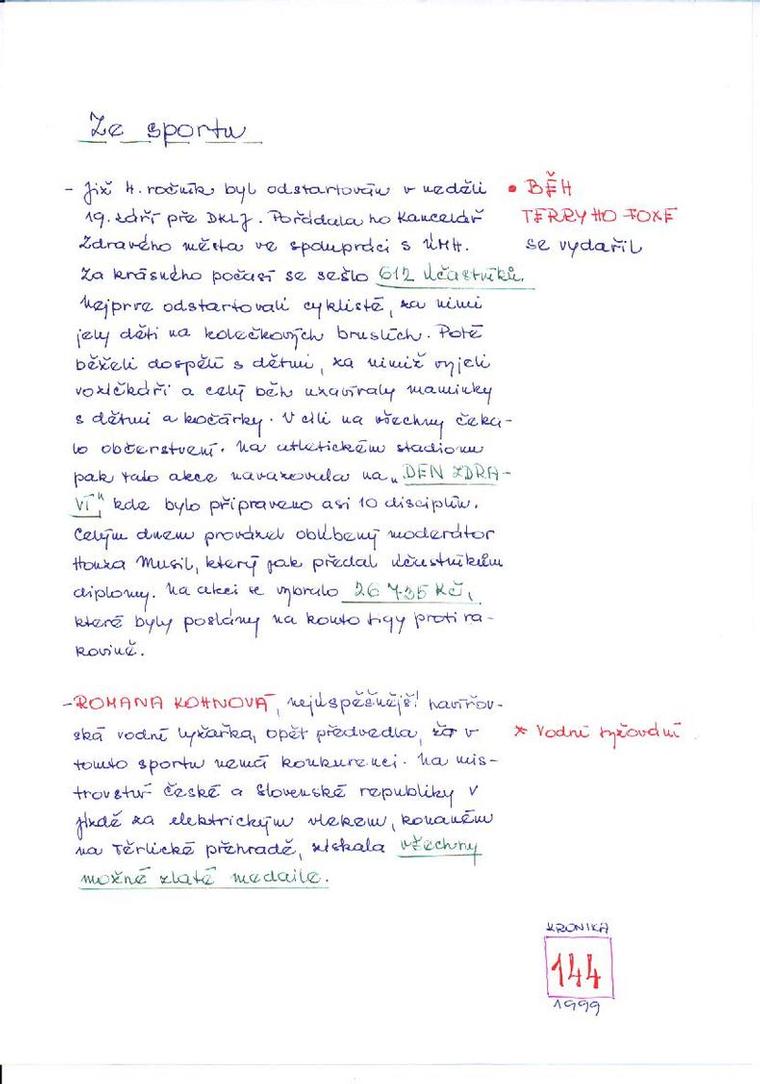 Ze sportu
- Již 4. ročník byl odstartován v neděli
19. září pře DKLJ. Pořádala ho Kancelář
Zdravého města ve spolupráci s ÚMH.
Za krásného počasí se sešlo 612 účastníků.
Nejprve odstartovali cyklisté, za nimi
jely děti na kolečkových bruslích. Poté
běželi dospělí s dětmi, za nimiž vyjeli
vozíčkáři a celý běh uzavíraly maminky
s dětmi a kočárky. V cíli na všechny čeka-
lo občerstvení. Na atletickém stadionu
pak tato akce navazovala na „DEN ZDRA-
VÍ" kde bylo připraveno asi 10 disciplín.
Celým dnem provázel oblíbený moderátor
Honza Musil, který pak předal účastníkům
diplomy. Na akci se vybralo 26 735 Kč,
které byly poslány na konto Ligy proti ra-
kovině.
• BĚH
TERRYHO FOXE
se vydařil
- ROMANA KOHNOVÁ, nejúspěšnější havířov-
ská vodní lyžařka, opět předvedla, že v
tomto sportu nemá konkurenci. Na mis-
trovství České a Slovenské republiky v
jízdě za elektrickým vlekem, konaném
na Těrlické přehradě, získala všechny
možné zlaté medaile.
* Vodní lyžování
KRONIKA
144
1999